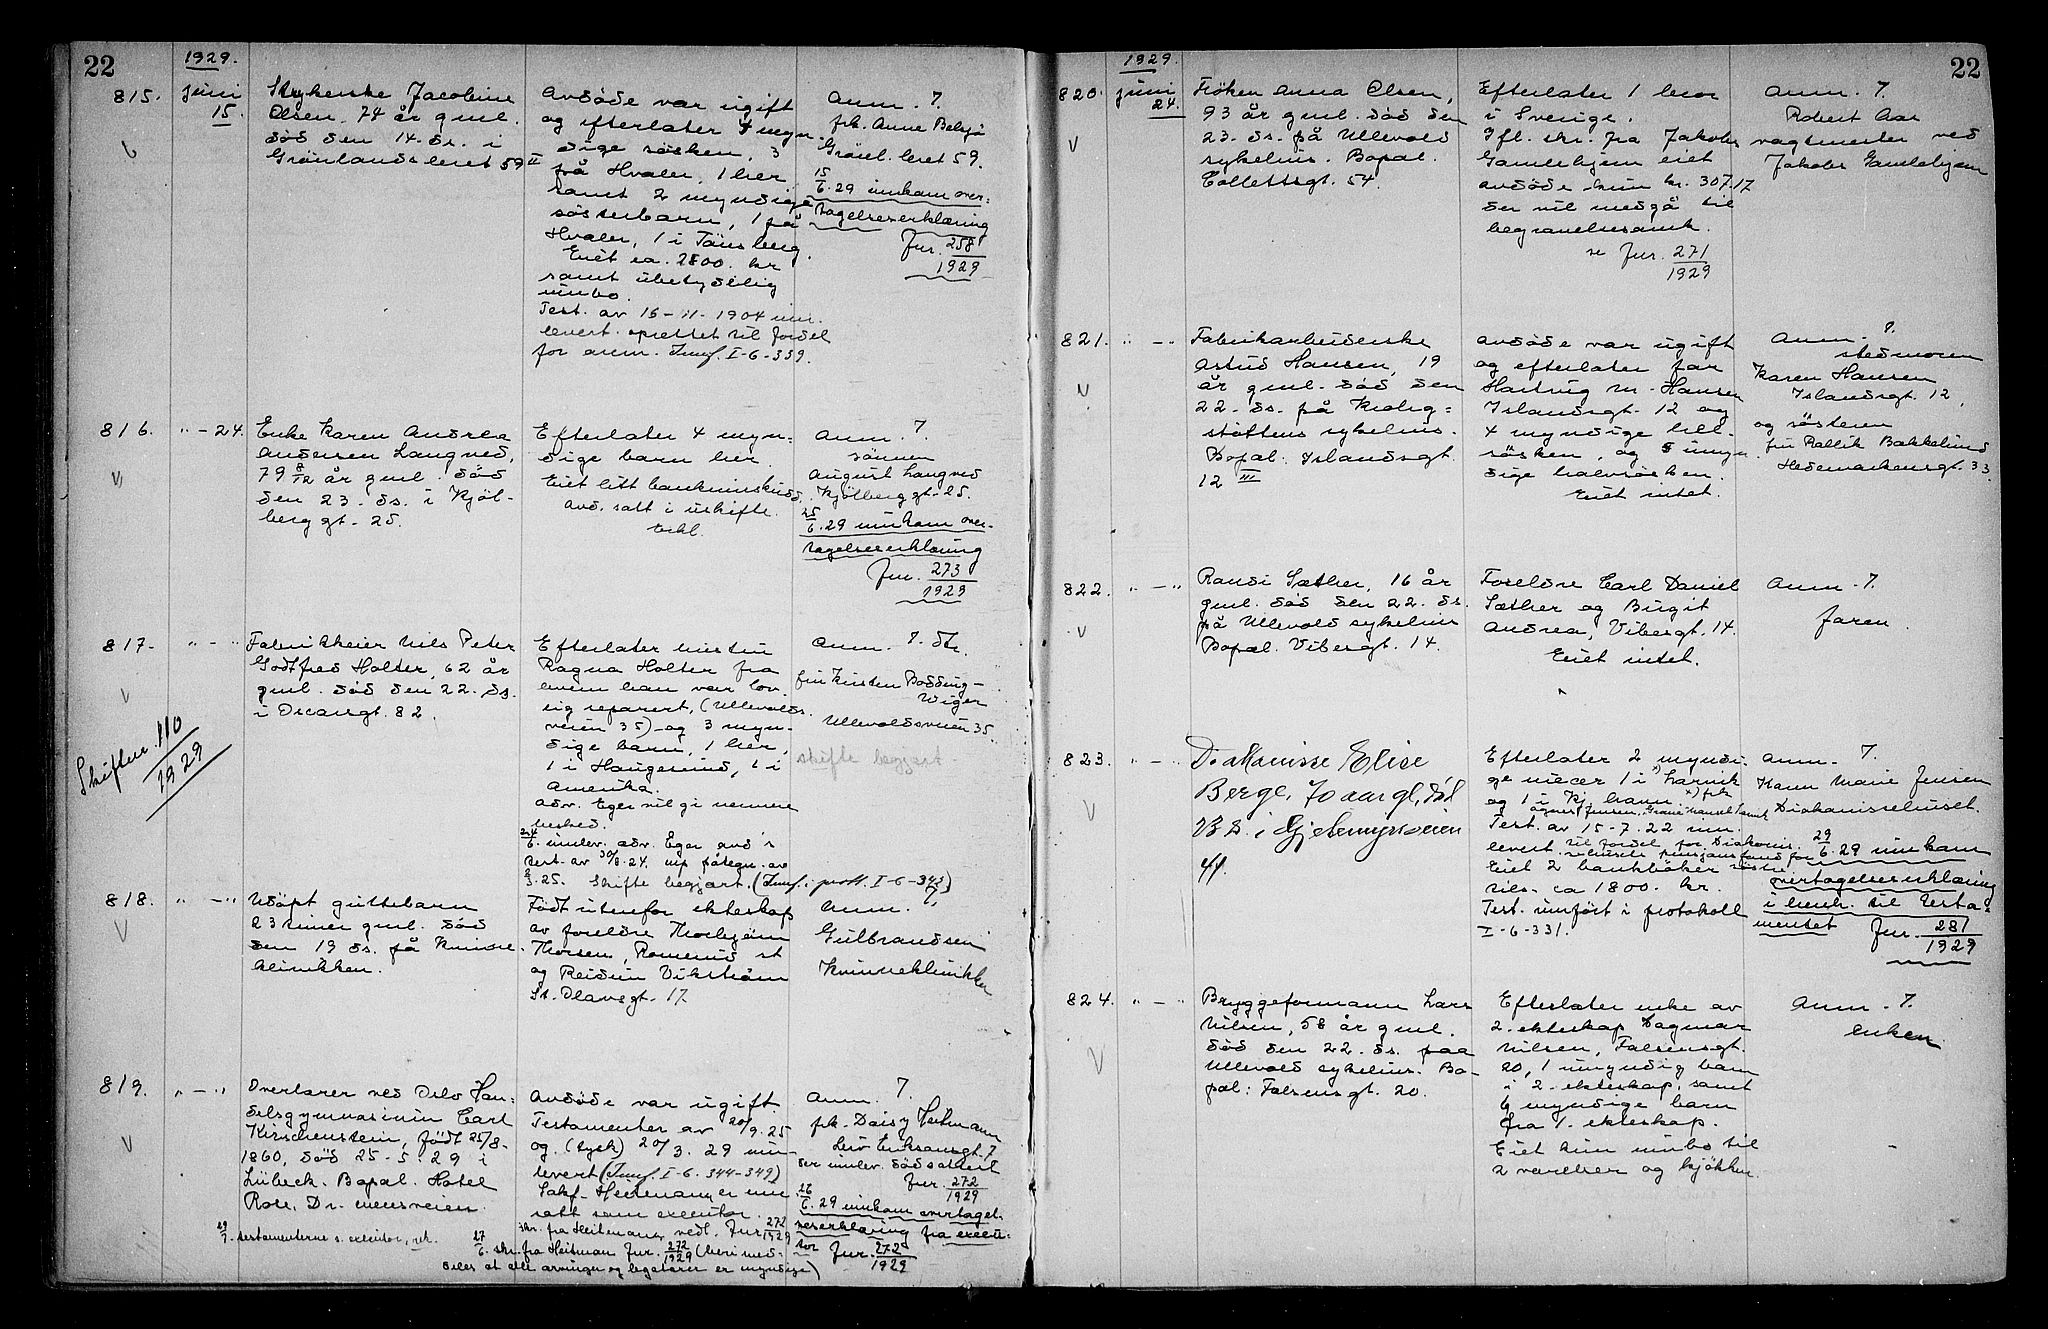 22
1929.
815.
juni
15.
Strykerske Jacobine
Olsen, 74 år gml.
död den 14. ds. i
Grönlandsleret 59 II
Avdöde var ugift
og efterlater 4 myn-
dige sösken, 3
på Hvaler, 1 her
samt 2 myndige
sösterbarn, 1 på
Hvaler, 1 i Tönsberg.
Eiet ca. 2800. kr
samt ubetydelig
innbo.
Test. av 16-11-1904 inn-
levert oprettet til fordel
for anm. Innf. I-6-339.
Anm. 7.
frk. Anne
Grönl. leret 59.
15/6.29 innkom over-
tagelseserklæring
Jnr. 258/1929
816.
" - 24.
Enke Karen Andrea
Andersen Langved,
79 8/12 år gml. död
den 23. ds. i Kjöl-
berggt. 25.
Efterlater 4 myn-
dige barn her.
Eiet litt bankinnskudd.
Avd. satt i uskifte.
Erkl.
Anm. 7.
sönnen
August Langved
Kjölberggt. 25.
25/6.29 innkom over-
tagelseserklæring
Jnr. 273/1929
817.
" - "
Fabrikkeier Nils Peter
Godtfred Holter, 62 år
gml. död den 22. ds.
i Oscarsgt. 82.
Skiftenr. 110/1929
Efterlater hustru
Ragna Holter fra
hvem han var lov-
lig separert, (Ullevolds-
veien 35) og 3 myn-
dige barn, 1 her,
1 i Haugesund, 1 i
Amerika.
Adv. Eger vil gi nærmere
besked.
24/6. innlev. adv. Eger avd's
test. av 30/8.24. m/p påtegn. av
25. Skifte begjært. (Innf. i prot. I-6-343)
Anm. 7. dtr.
fru Kirsten Bödding-
Wiger
Ullevoldsveien 35.
skifte begjært.
818.
" - "
Udöpt guttebarn
23 timer gml. död
den 19 ds. på Kvinne-
klinikken.
Födt utenfor ekteskap
av foreldre Thorbjörn
Thorsen, Romerud st
og Reidun Vikström
St. Olavsgt. 17
Anm. 7.
Gulbrandsen
Kvinneklinikken
819.
" - "
Overlærer ved Oslo Han-
delsgymnasium Carl
Kirschenstein, födt 25/8-
1860, död 25-5-29 i
Lübeck. Bopæl. Hotel
Rose, Drammensveien.
29/7. testamenterne s. executor, rek.
Avdöde var ugift
Testamenter av 20/9.25
og (tysk) 20/3.29 inn-
levert (Innf. I-6.344-349)
Sakf. Heitmann er inn-
satt som executor.
skr. fra Heitmann vedl. Jnr 272/1929
27/6. skr. fra Heitman Jnr. 272/1929 (hvori med-
deles at alle arvinger og legatarer er myndige)
Anm. 7.
frk. Daisy Heitmann
Leiv Eriksonsgt. 7
der innlev. dödsattest
Jnr. 272/1929
26/6.29 innkom overtagel-
seserklæring fra execu-
tor Jnr. 272/1929
22
1929.
820.
juni
24.
Fröken Anna Olsen,
93 år gml. död den
23. ds. på Ullevold
sykehus. Bopæl.
Collettsgt. 54.
Efterlater 1 bror
i Sverige.
Ifl. skr. fra Jakobs
Gamlehjem eiet
avdöde kun kr. 307.17
der vil medgå til
begravelsesomk.
se Jnr. 271/1929
Anm. 7.
Robert Aas
vagtmester ved
Jakobs Gamlehjem
821.
" - "
Fabrikarbeiderske
Astrid Hansen, 19
år gml. död den
22. ds. på Krohg-
stöttens sykehus.
Bopæl. Islandsgt.
12 III
Avdöde var ugift
og efterlater far
Hartvig M. Hansen
Islandsgt. 12 og
4 myndige hel-
sösken, og 5 umyn-
dige halvsösken.
Eiet intet.
Anm. 7.
stedmoren
Karen Hansen
Islandsgt. 12,
og sösteren
fru Bakkelund
Hedemarkensgt. 33.
822.
" - "
Randi Sæther, 16 år
gml. död den 22. ds.
på Ullevold sykehus
Bopæl. Vibesgt. 14.
Foreldre Carl Daniel
Sæther og Birgit
Andrea, Vibesgt. 14.
Eiet intet.
Anm. 7.
faren.
823.
" - "
Diakonisse Elise
Berge, 70 aar gl, död
23 ds. i Gjetemyrsveien
41.
Efterlater 2 myndi-
ge niecer 1 i x) Larvik
og 1 i Kj. havn. x) frk
Agnes Jensen,
Test. av 15-7.22 inn-
levert til fordel for Diakonis-
sehusets pensjonsfond for söstre.
Eiet 2 bankböker
tils. ca 1800. kr.
Test. innfört i protokoll
I-6-331.
Anm. 7.
Karen Marie Jensen
Diakonissehuset.
29/6.29 innkom
overtagelseserklæring
i henh. til testa-
mentet Jnr. 281/1929
824.
" - "
Bryggeformann Lars
Nilsen, 58 år gml.
död den 22. ds. paa
Ullevold sykehus. Bo-
pæl: Falsensgt. 20.
Efterlater enke av
2. ekteskap Dagmar
Nilsen, Falsensgt.
20, 1 umyndig barn
i 2. ekteskap, samt
6 myndige barn
fra 1. ekteskap.
Eiet kun innbo til
2 værelser og kjökken
Anm. 7.
enken